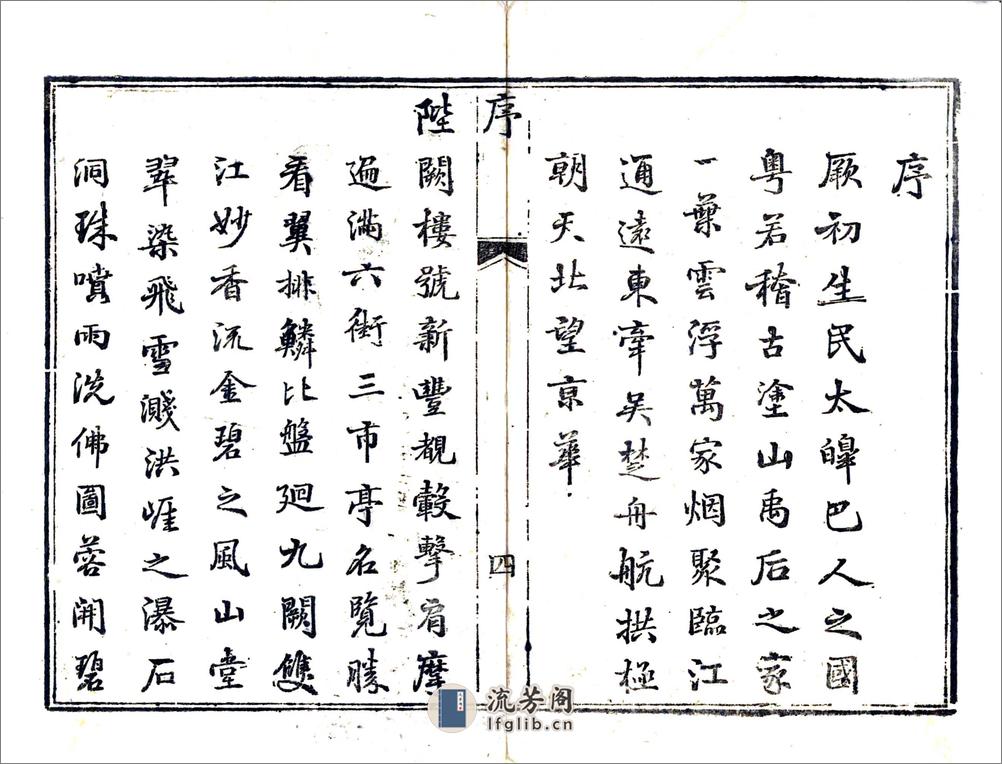 序
厥初生民太皡巴人之國
粤若稽古塗山禹后之家
一葉雲浮萬家烟聚臨江
通遠東牽吴楚舟航拱極
朝天北望京華
序
四
陛闕樓號新豐覩轂擊肩摩
遍滿六街三市亭名覽勝
看翼排鱗比盤廻九闕雙
江妙香流金碧之風山堂
翠染飛雪濺洪崖之瀑石
洞珠噴雨洗佛圖蓉開碧
流芳阁
lfglib.cn